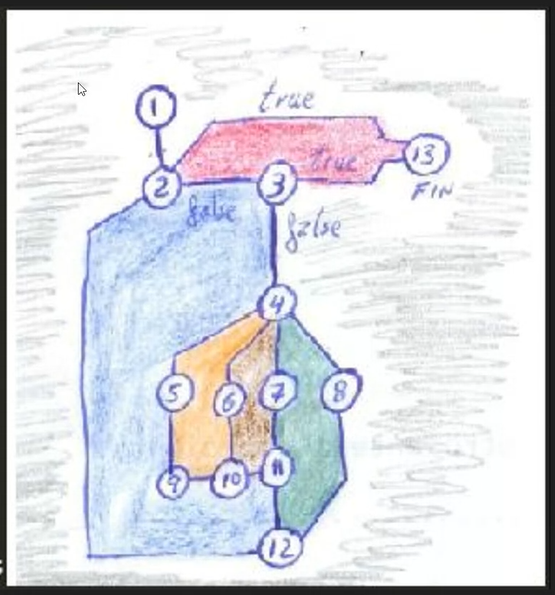 1
true
2
3
true
13
FIN
false
false
4
5
6
7
8
9
10
11
12